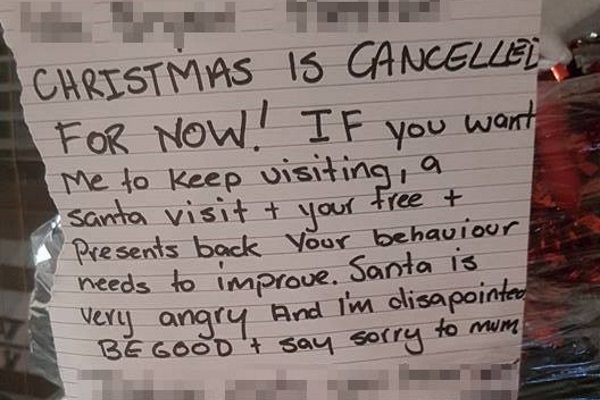 CHRISTMAS IS CANCELLED
FOR NOW! IF you want
Me to keep visiting, a
santa visit + your tree +
Presents back your behaviour
needs to improve. Santa is
very angry And I'm disapointed
BE GOOD + say sorry to mum